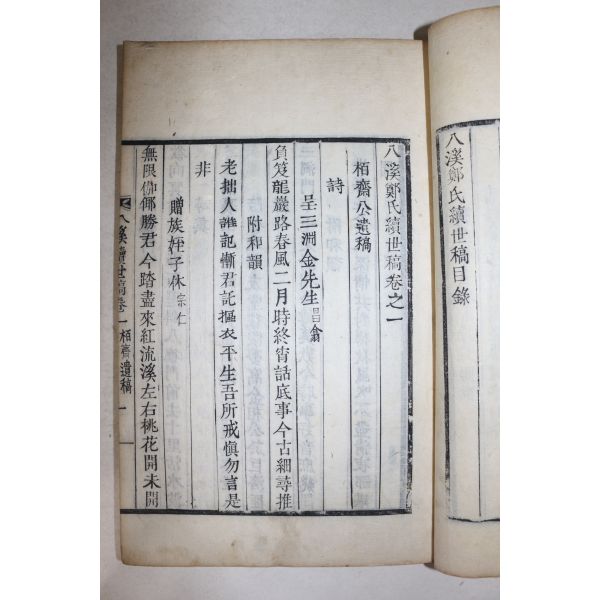 八溪鄭氏續世稿目錄
八溪鄭氏續世稿卷之一
栢齋公遺稿
詩
呈三淵金先生昌翕
負笈龍巖路春風二月時終宵話底事今古細尋推
附和韻
老拙人誰記慚君託摳衣平生吾所戒愼勿言是
非
贈族姪子休宗仁
無限伽倻勝君今踏盡來紅流溪左右桃花開未開
八溪續世稿卷一 栢齋遺稿 一